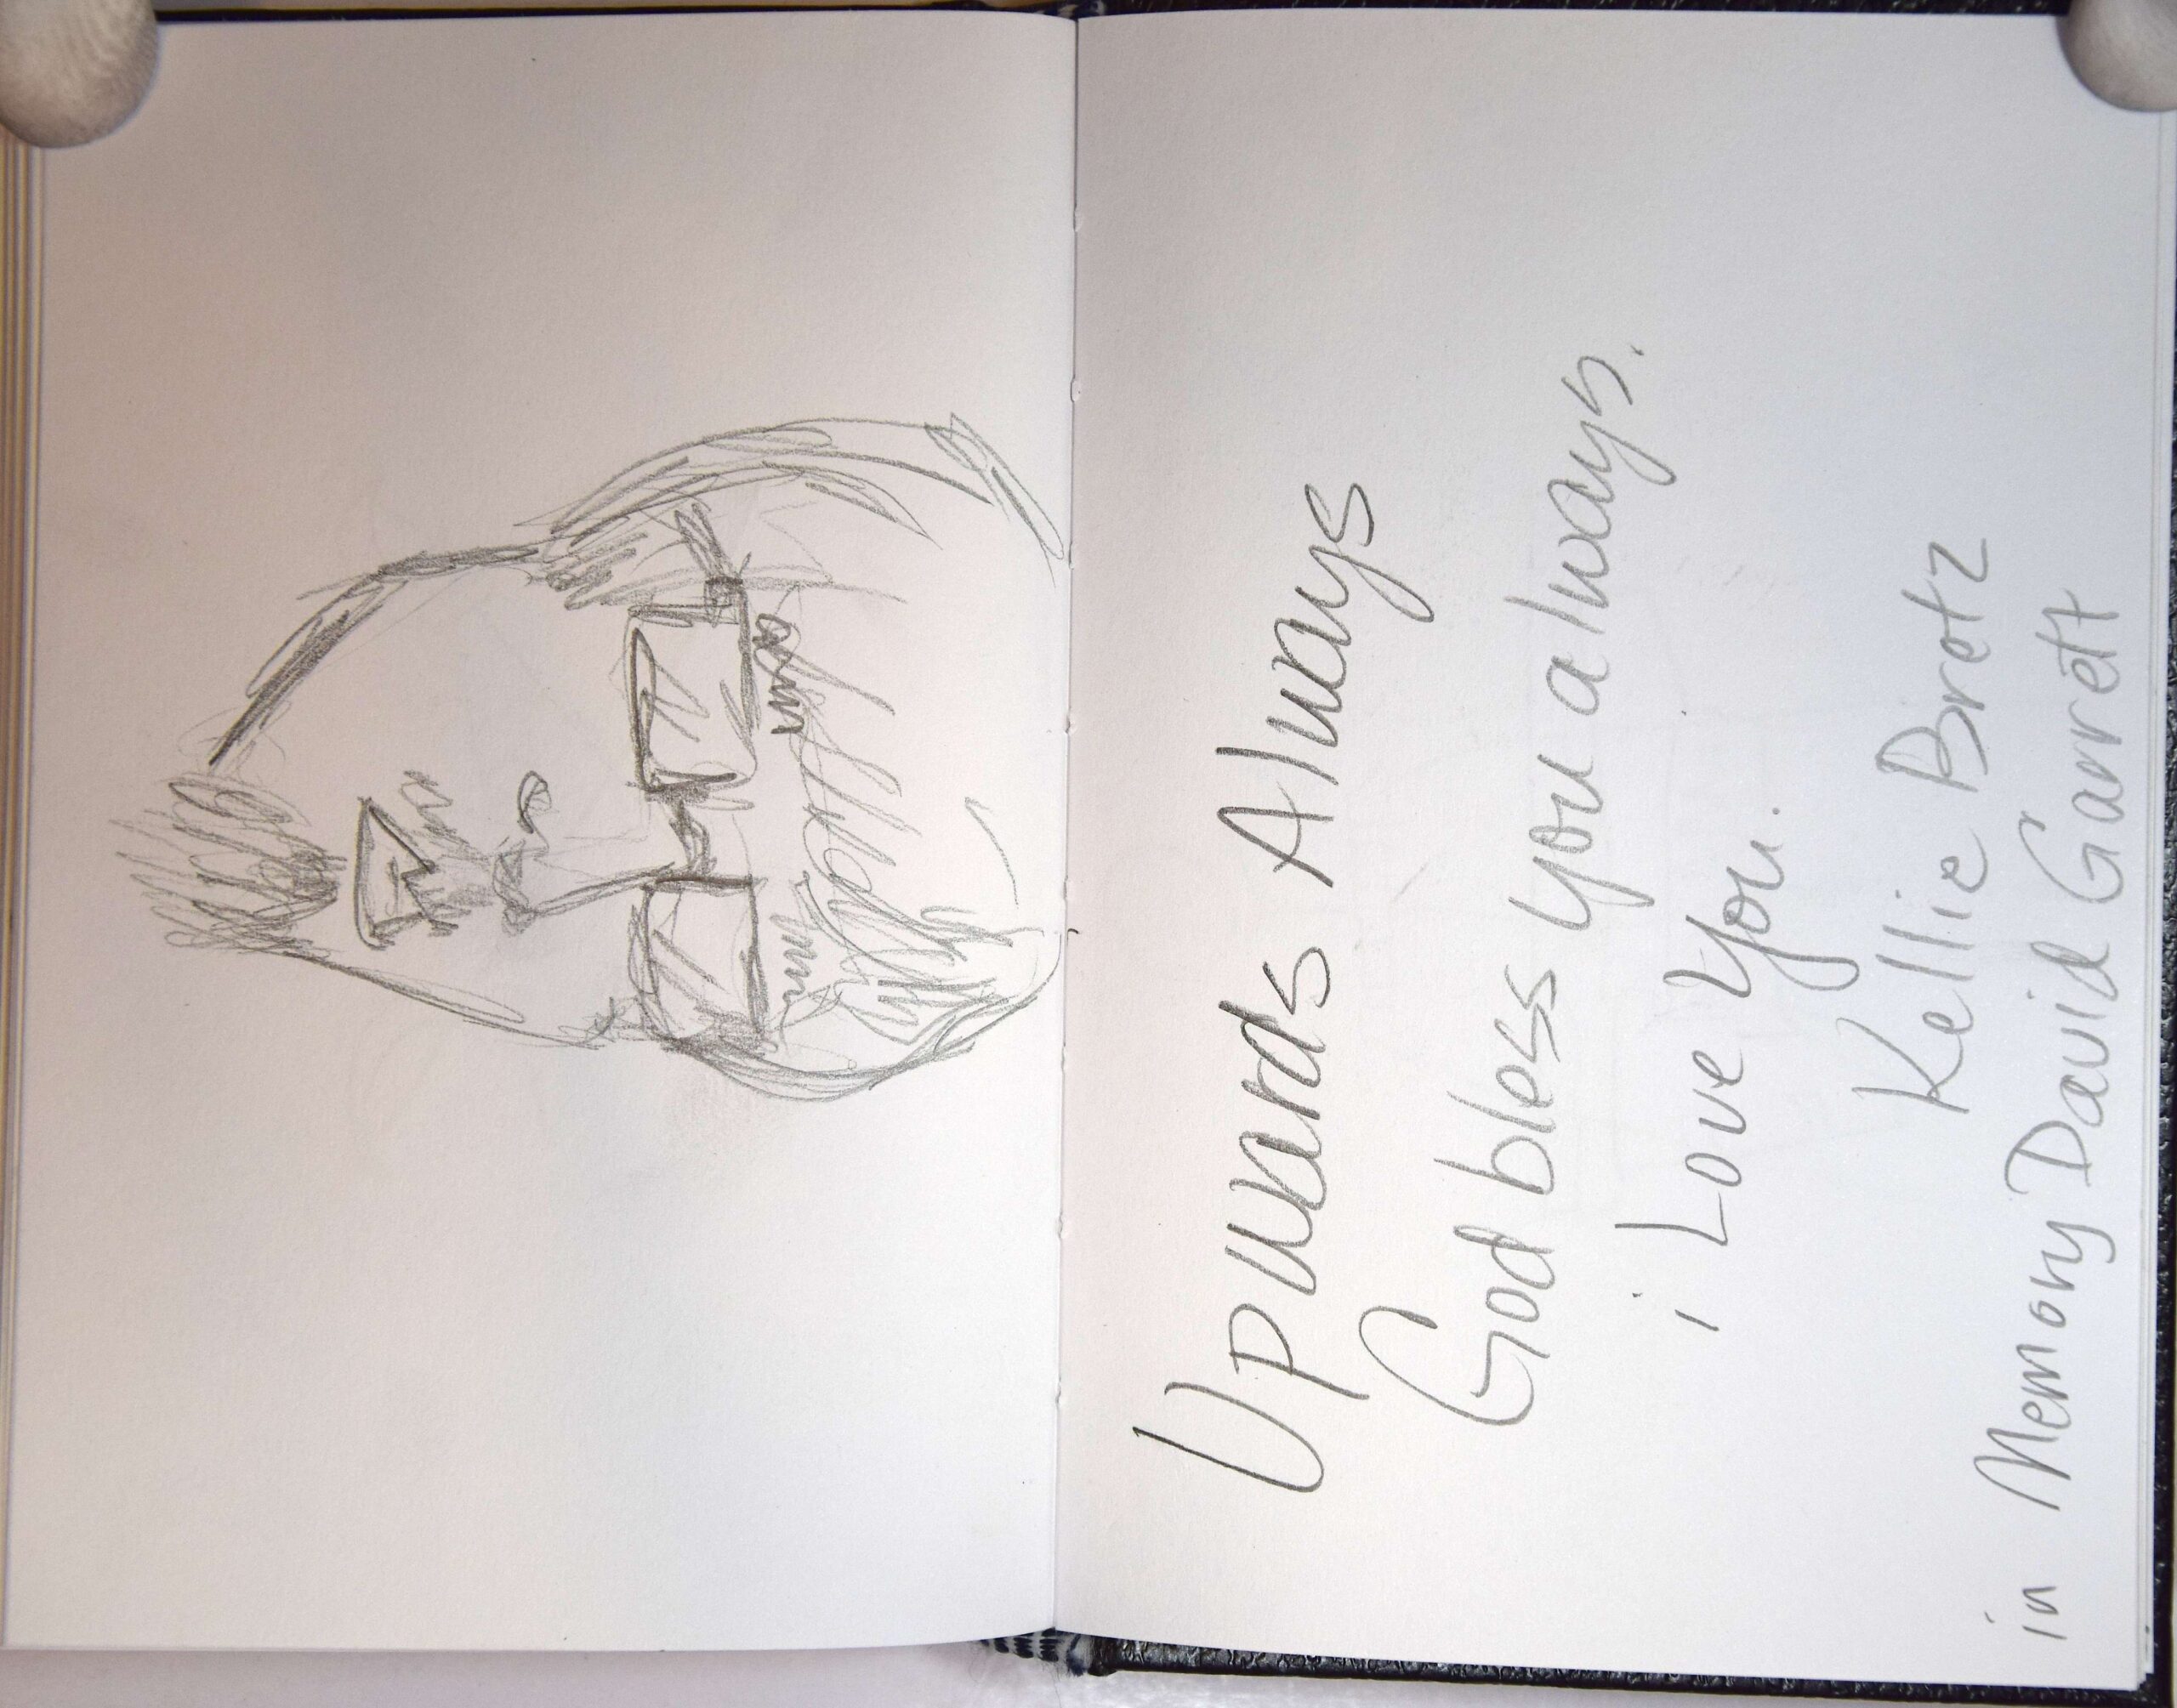 Upwards Always
God bless you always.
i Love you.
Kellie Bretz
in Memory David Garrett